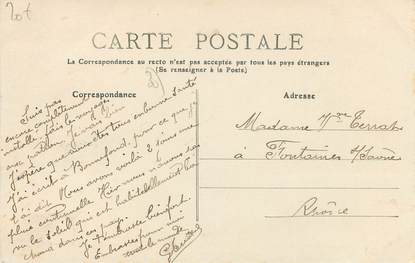 20f
CARTE POSTALE
La Correspondance au recto n'est pas acceptée par tous les pays étrangers
(Se renseigner à la Poste)
Correspondance
Adresse
Suis pas
encore complètement
installé, fais le voyage
avec
J'espère que vous êtes tous en bonne santé
J'ai écrit à pour ce que je
t'ai dit. Nous avons voilà 2 jours une
pluie continuelle. Hier nous n'avons pas
vu le soleil qui est habituellement là
chaud dans ce pays.
Je t'embrasse bien fort.
Embrasse pour moi
tout le monde
Madame Vve Terrat
à Fontaines s/Saône
Rhône